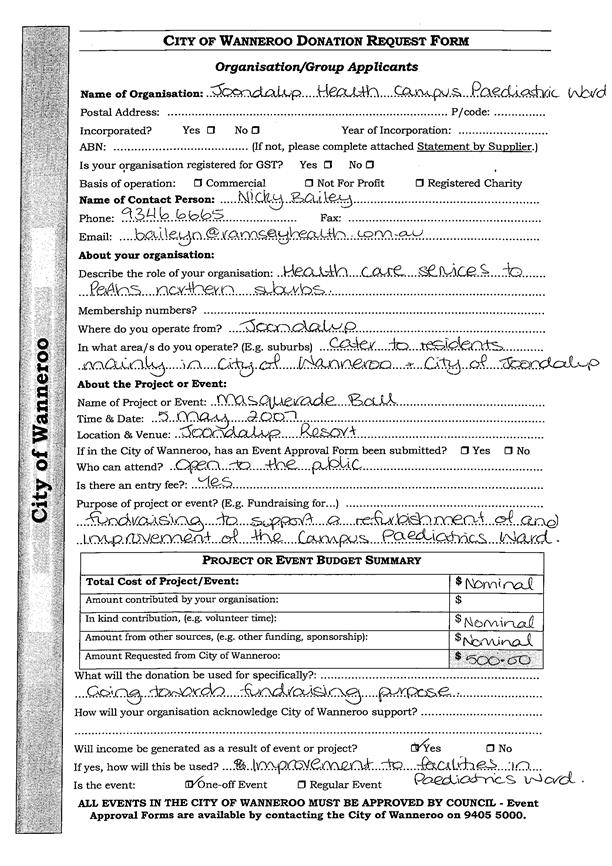 CITY OF WANNEROO DONATION REQUEST FORM
Organisation/Group Applicants
Name of Organisation: Joondalup Health Campus Paediatric Ward
Postal Address: P/code:
Incorporated? Yes ☐ No ☐ Year of Incorporation:
ABN: (If not, please complete attached Statement by Supplier.)
Is your organisation registered for GST? Yes ☐ No ☐
Basis of operation: ☐ Commercial ☐ Not For Profit ☐ Registered Charity
Name of Contact Person: Nicky Bailey
Phone: 9346 6665 Fax:
Email: baileyn@ramseyhealth.com.au
About your organisation:
Describe the role of your organisation: Health care services to
Perths northern suburbs.
Membership numbers?
Where do you operate from? Joondalup
In what area/s do you operate? (E.g. suburbs) Cater to residents
mainly in City of Wanneroo + City of Joondalup
About the Project or Event:
Name of Project or Event: Masquerade Ball
Time & Date: 5 May 2007
Location & Venue: Joondalup Resort
If in the City of Wanneroo, has an Event Approval Form been submitted? ☐ Yes ☐ No
Who can attend? Open to the public
Is there an entry fee?: Yes
Purpose of project or event? (E.g. Fundraising for...)
fundraising to support a refurbishment of and
improvement of the Campus Paediatrics Ward.
PROJECT OR EVENT BUDGET SUMMARY
Total Cost of Project/Event: $ Nominal
Amount contributed by your organisation: $
In kind contribution, (e.g. volunteer time): $ Nominal
Amount from other sources, (e.g. other funding, sponsorship): $ Nominal
Amount Requested from City of Wanneroo: $ 500.00
What will the donation be used for specifically?:
Going towards fundraising purpose.
How will your organisation acknowledge City of Wanneroo support?
Will income be generated as a result of event or project? ☑ Yes ☐ No
If yes, how will this be used? Improvement to facilities in
Paediatrics Ward.
Is the event: ☑ One-off Event ☐ Regular Event
ALL EVENTS IN THE CITY OF WANNEROO MUST BE APPROVED BY COUNCIL - Event
Approval Forms are available by contacting the City of Wanneroo on 9405 5000.
City of Wanneroo